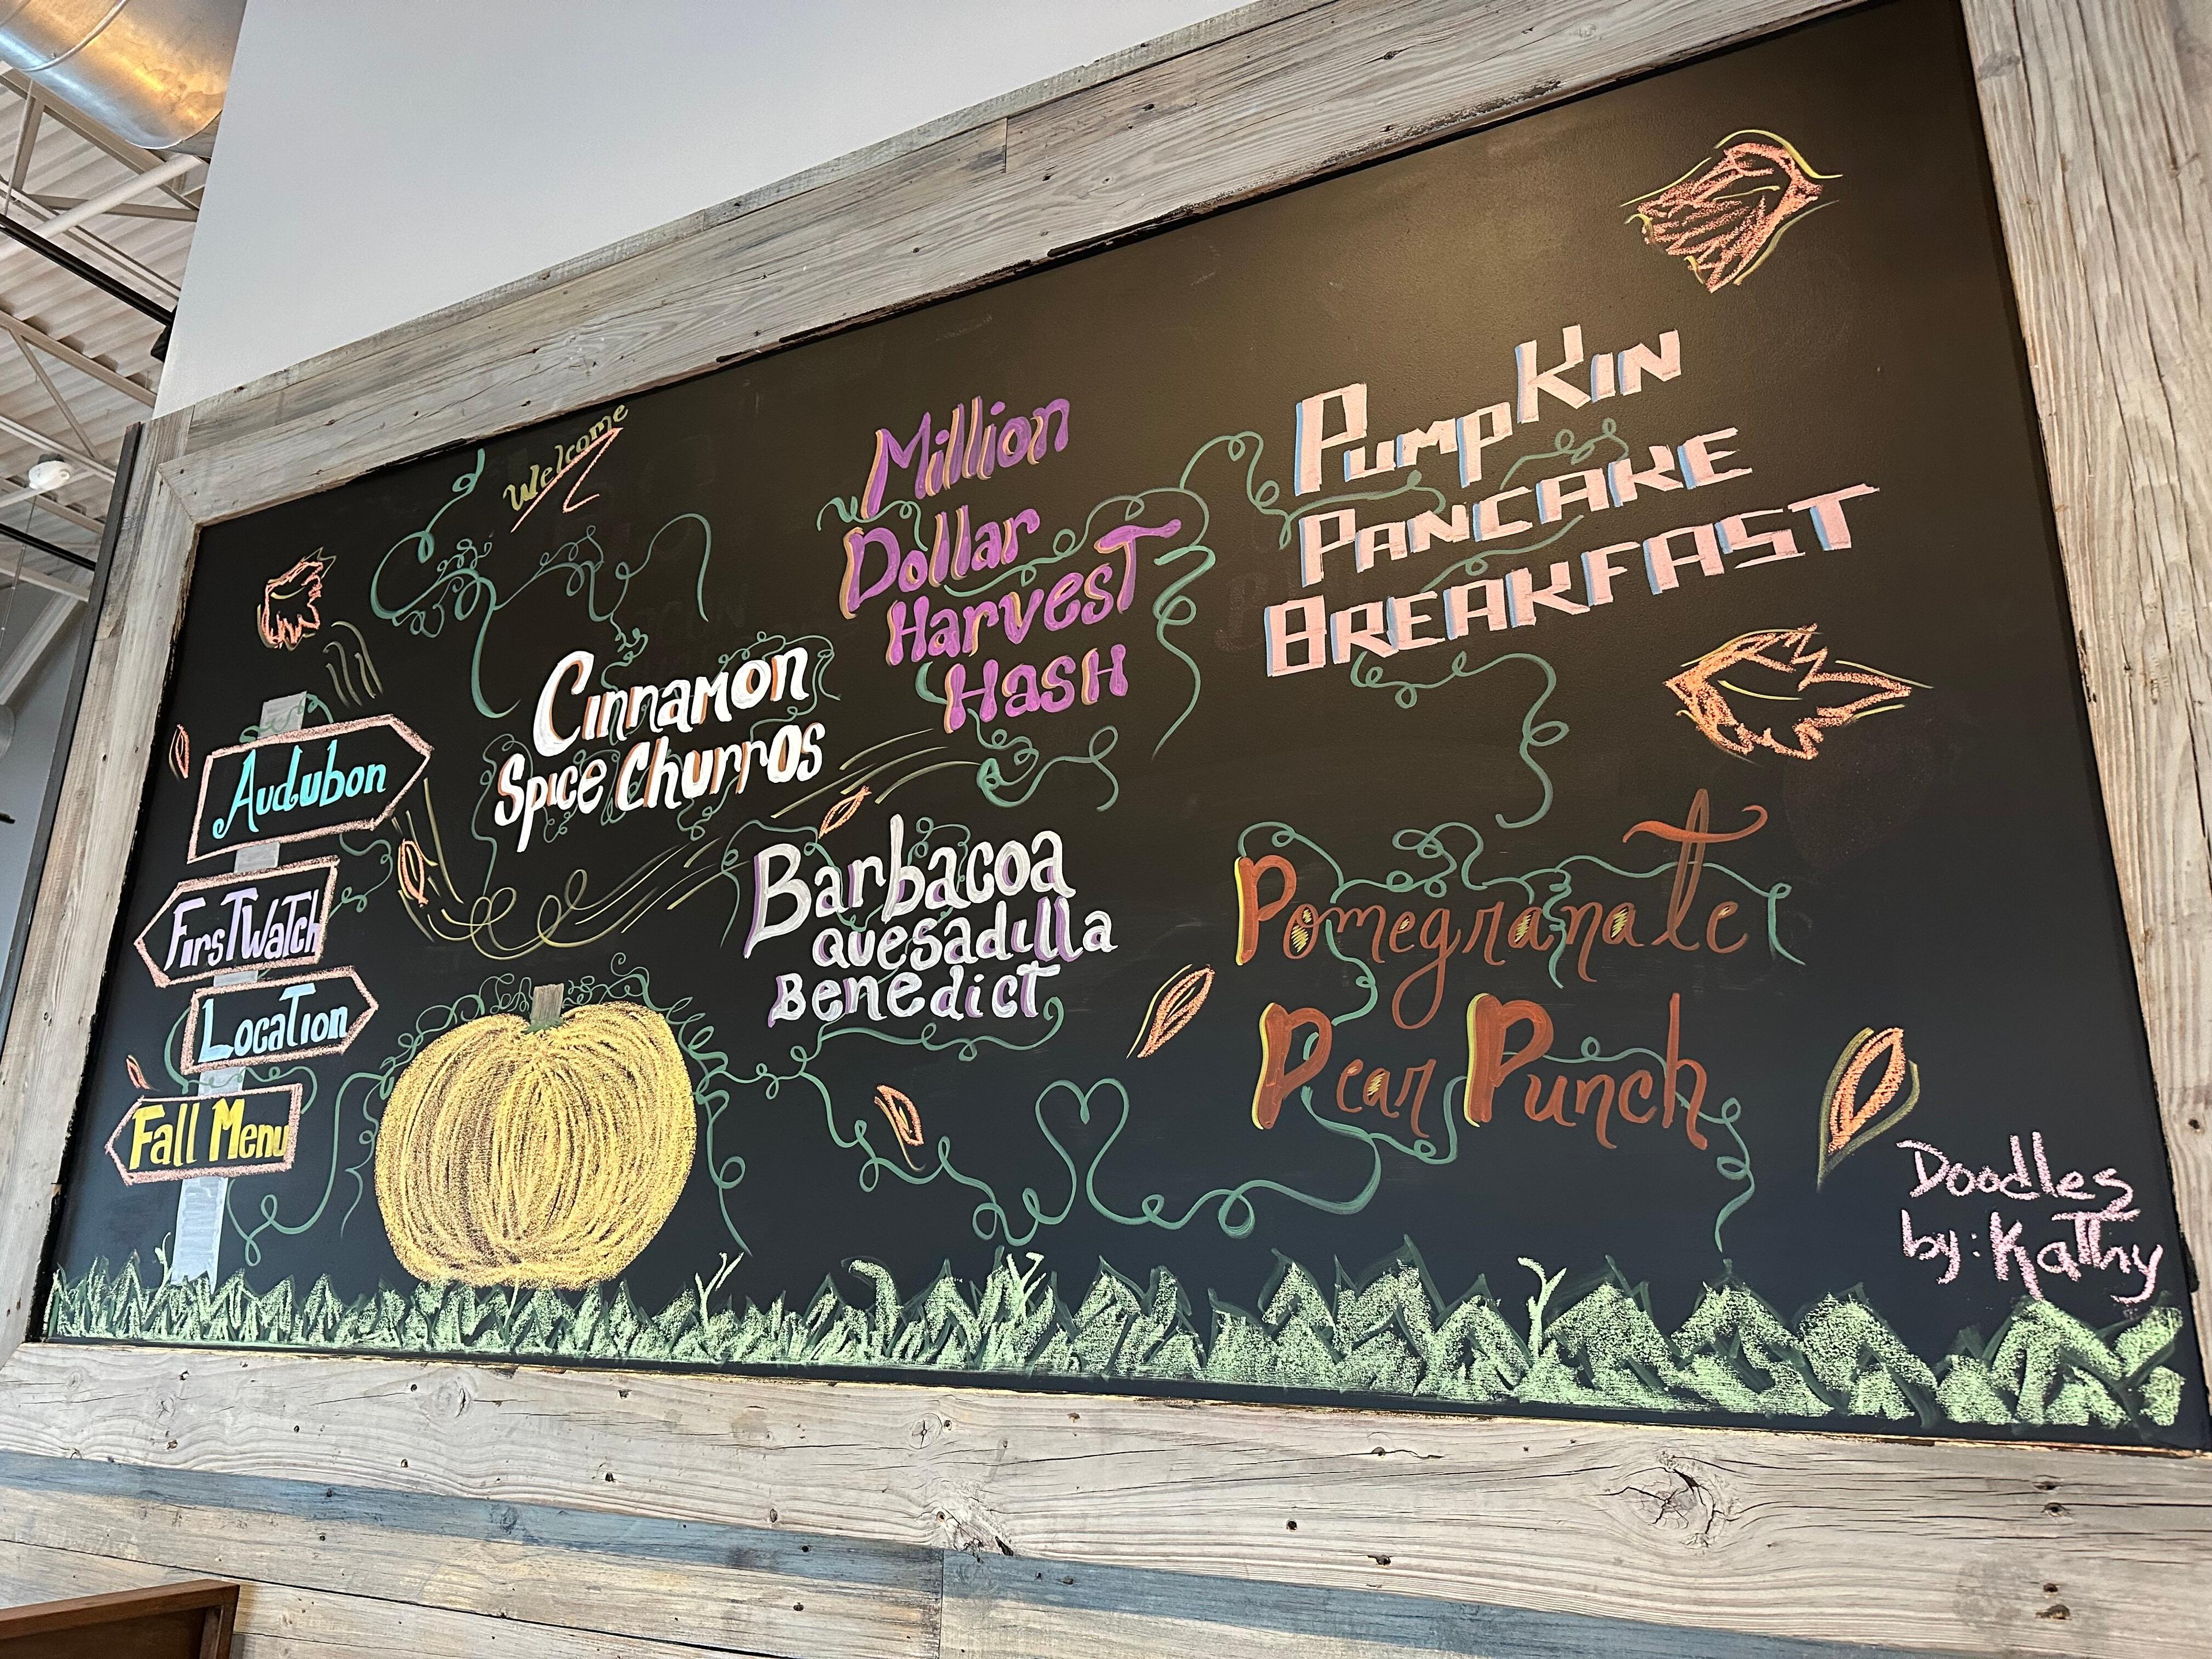 Welcome
Audubon
First Watch
Location
Fall Menu
Cinnamon
Spice Churros
Million
Dollar
Harvest
Hash
Barbacoa
quesadilla
Benedict
Pumpkin
Pancake
Breakfast
Pomegranate
Pear Punch
Doodles
by: Kathy